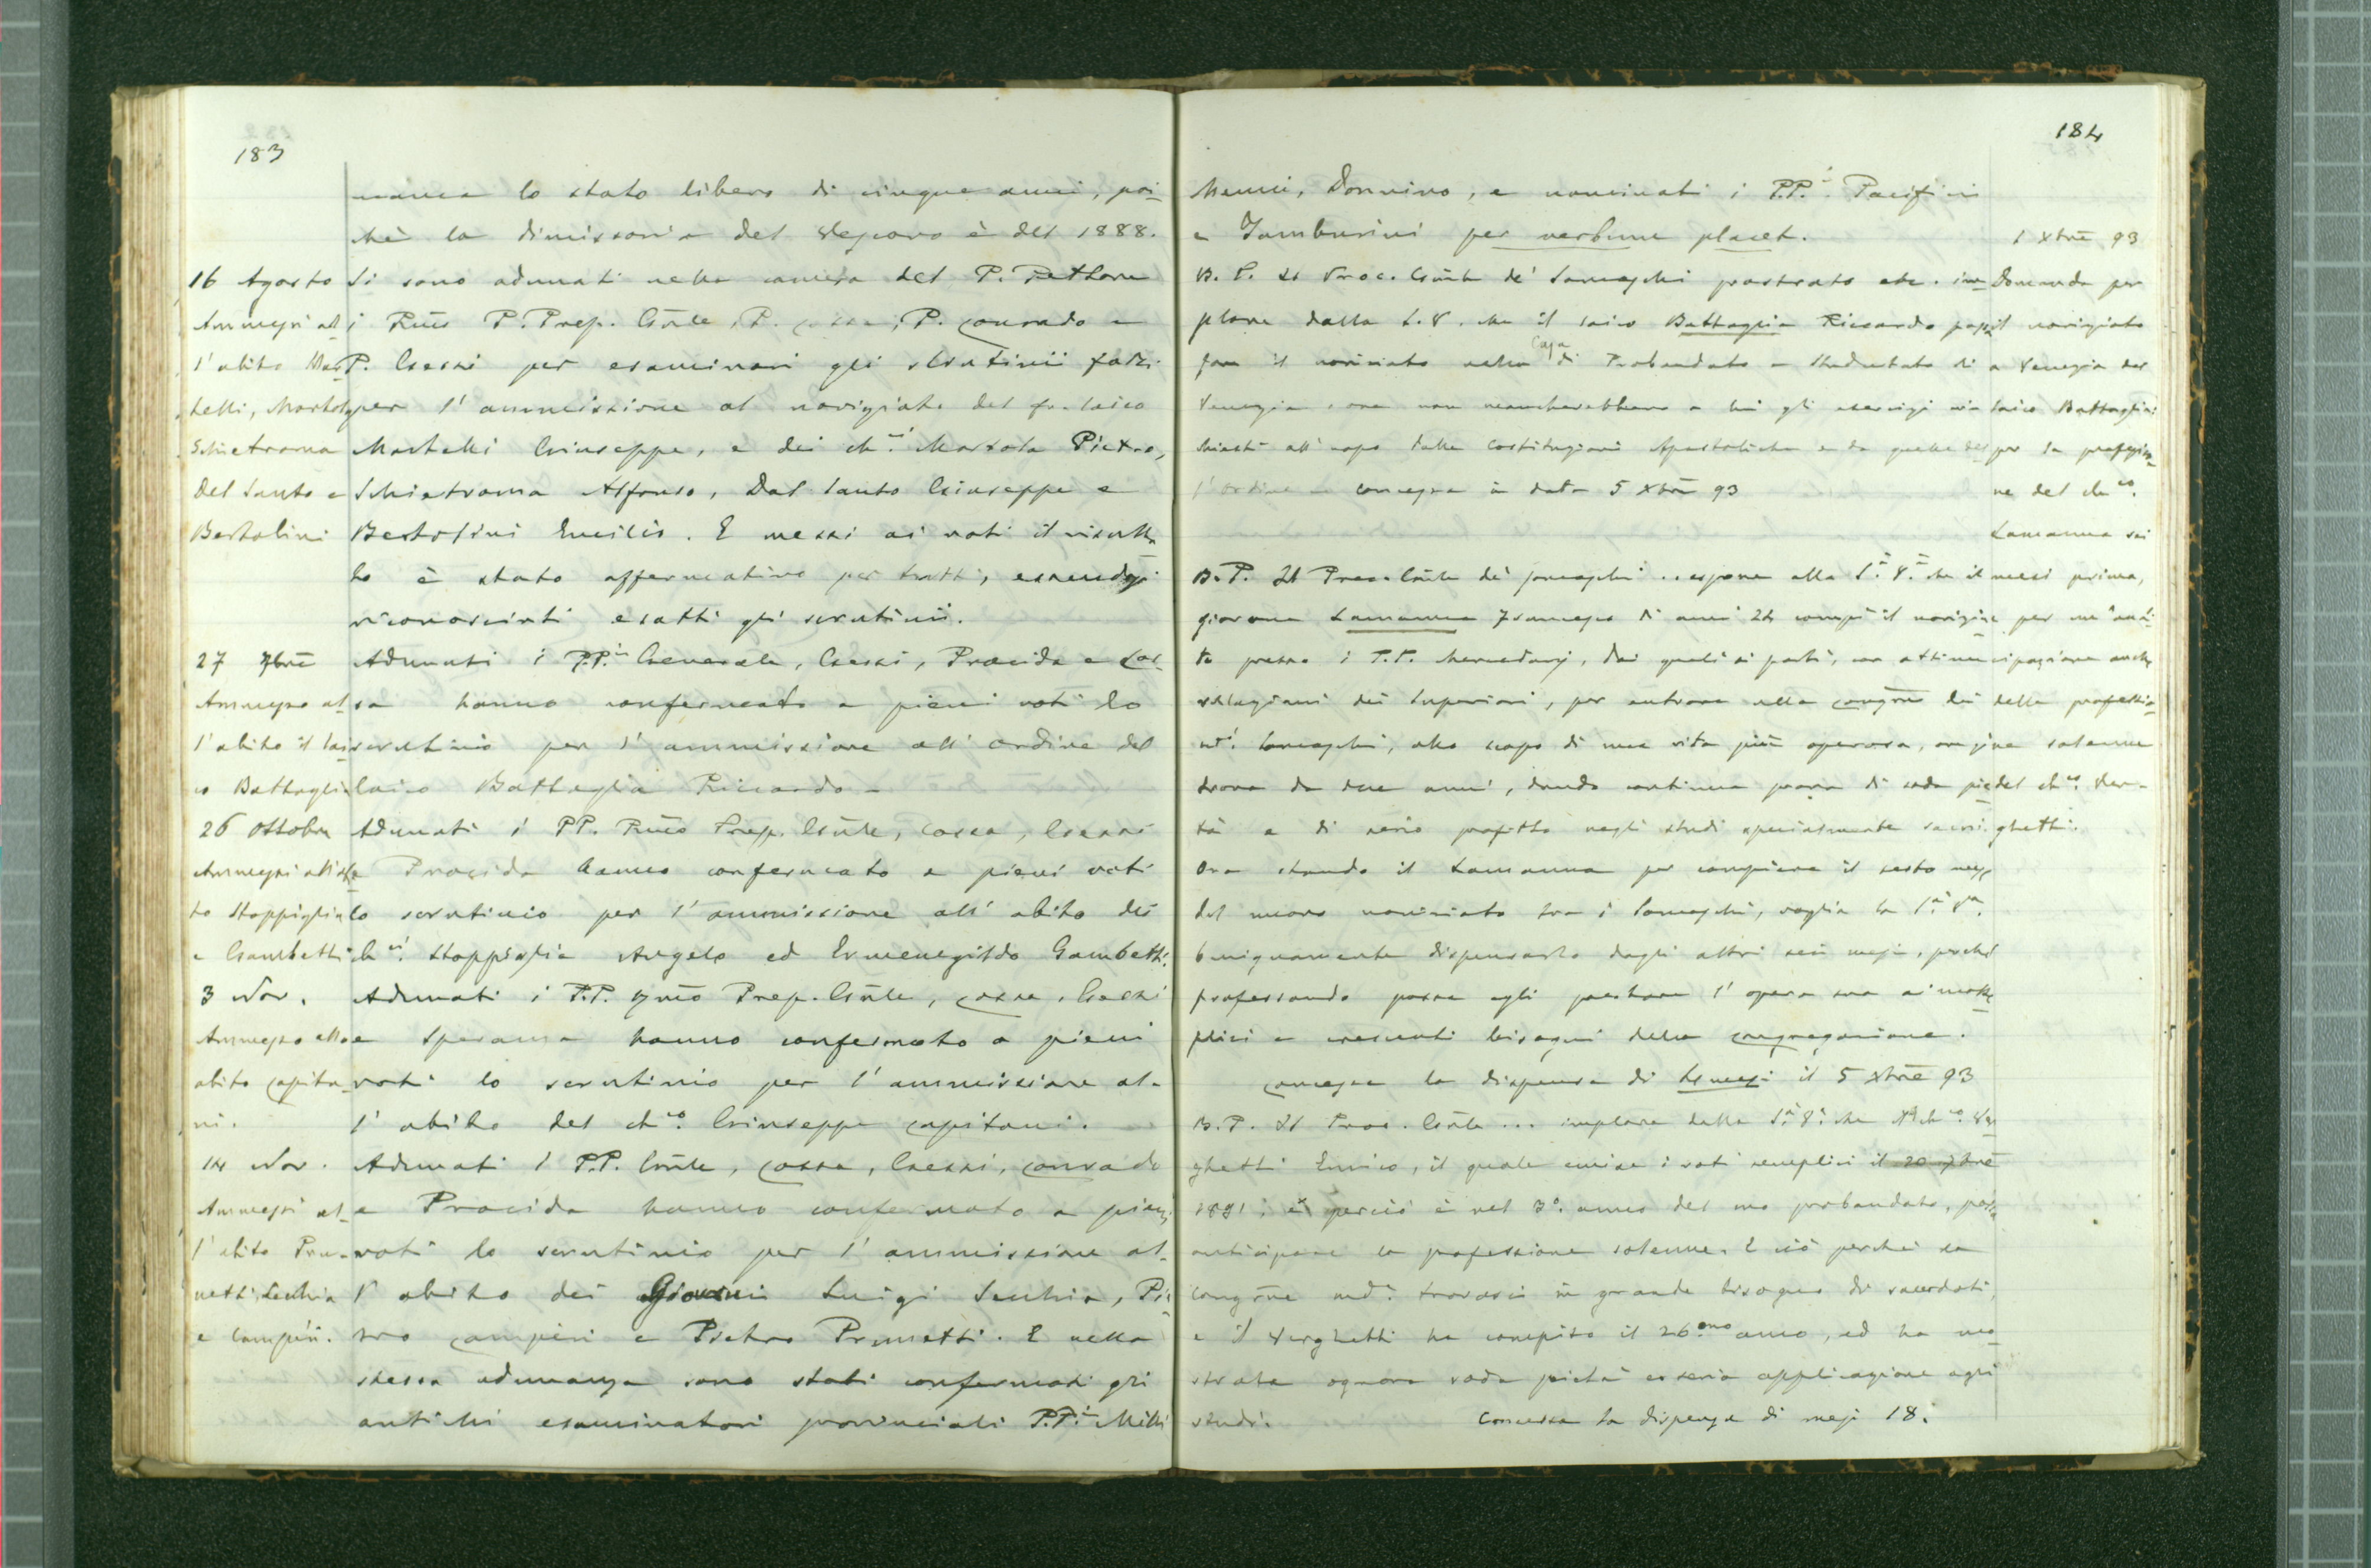 183
manca lo stato libero di cinque anni, poi-
chè la dimissoria del Vescovo è del 1888.
16 Agosto
Ammessi al-
l'abito Mar-
telli, Martola,
Schietroma
Del Santo e
Bertolini
Si sono adunati nella camera del P. Rettore
i Rmo P. Prep. Gnle, P. Cossa, P. Conrado e
P. Gessi per esaminari gli scrutinii fatti
per l'ammissione al noviziato del fr. laico
Martelli Giuseppe, e dei chci Marzola Pietro,
Schietroma Alfonso, Dal Santo Giuseppe e
Bertolini Emilio. E messi ai voti il risulta-
to è stato affermativo per tutti, essendosi
riconosciuti esatti gli scrutinii.
27 7bre
Ammesso al-
l'abito il lai-
co Battaglia
Adunati i P.P.i Generale, Gessi, Procida e Cos-
sa hanno confermato a pieni voti lo
scrutinio per l'ammissione all'ordine del
laico Battaglia Riccardo -
26 Ottobre
Ammessi all'abi-
to Stoppiglia
e Gambetti
Adunati i PP. Rmo Prep. Gnle, Cossa, Gessi
e Procida hanno confermato a pieni voti
lo scrutinio per l'ammissione all'abito dei
chci Stoppiglia Angelo ed Ermenegildo Gambetti.
3 Nov.
Ammesso allo
abito Capita-
ni.
Adunati i P.P. Rmo Prep. Gnle, Cossa, Gessi
e Speranza hanno confermato a pieni
voti lo scrutinio per l'ammissione al-
l'abito del chco Giuseppe Capitani.
14 Nov.
Ammessi al-
l'abito Pru-
netti, Secchia
e Campèri.
Adunati i P.P. Gnle, Cossa, Gessi, Conrado
e Procida hanno confermato a pieni
voti lo scrutinio per l'ammissione al-
l'abito dei Giovani Luigi Secchia, Pie-
tro Campèri e Pietro Prunetti. E nella
stessa adunanza sono stati confermati gli
antichi esaminatori provinciali P.P.i
184
Donnino, e nominati i P.P.i Pacifici
e Tamburini per verbum placet.
1 Xbre 93
Domanda per
il noviziato
a Venezia del
laico Battaglia;
per la professio-
ne del chco
Lamanna sei
mesi prima,
per un'anti-
cipazione anche
della professio-
ne solenne
del chco Ver-
ghetti.
B. P. Il Proc. Gnle de' Somaschi prostrato etc. im-
plora dalla S. V. che il laico Battaglia Riccardo possa
fare il noviziato nella Casa di Probandato e Studentato di
Venezia, ove non mancherebbero a lui gli esercizi ri-
chiesti all'uopo dalle Costituzioni Apostoliche e da quelle del
l'ordine - Concessa in data 5 Xbre 93
B. P. Il Proc. Gnle dei Somaschi .. espone alla S.a V.a che il
giovane Lamanna Francesco di anni 24 compì il novizia-
to presso i P.P. Mercedarj, dai quali si partì, con ottime
relazioni dei Superiori, per entrare nella Congne dei
Somaschi, allo scopo di una vita più operosa, ove si
trova da due anni, dando continua prova di soda pie-
tà e di serio profitto negli studi specialmente sacri.
Ora stando il Lamanna per compiere il sesto mese
del nuovo noviziato tra i Somaschi, voglia la S.a V.a
benignamente dispensarlo dagli altri sei mesi, perchè
professando possa egli prestare l'opera sua ai molte-
plici e crescenti bisogni della Congregazione.
Concessa la dispensa di 4 mesi il 5 Xbre 93
B. P. Il Proc. Gnle ... implora dalla S.a V.a che il chco Ver-
ghetti Enrico, il quale emise i voti semplici il 20 7bre
1891, e perciò è nel 3o anno del suo probandato, possa
anticipare la professione solenne. E ciò perchè la
Congne trovasi in grande bisogno di sacerdoti,
e il Verghetti ha compito il 26.mo anno, ed ha mo-
strato ognora soda pietà e seria applicazione agli
studi. Concessa la dispensa di mesi 18.